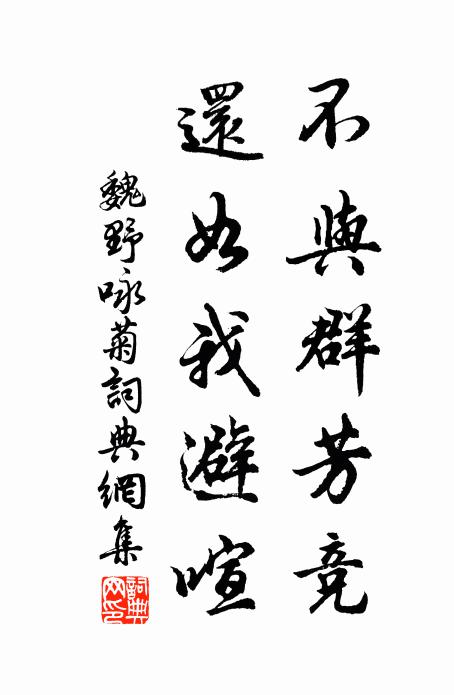 不與群芳競
還如我避喧
魏野咏菊詞典網集
詞典网印